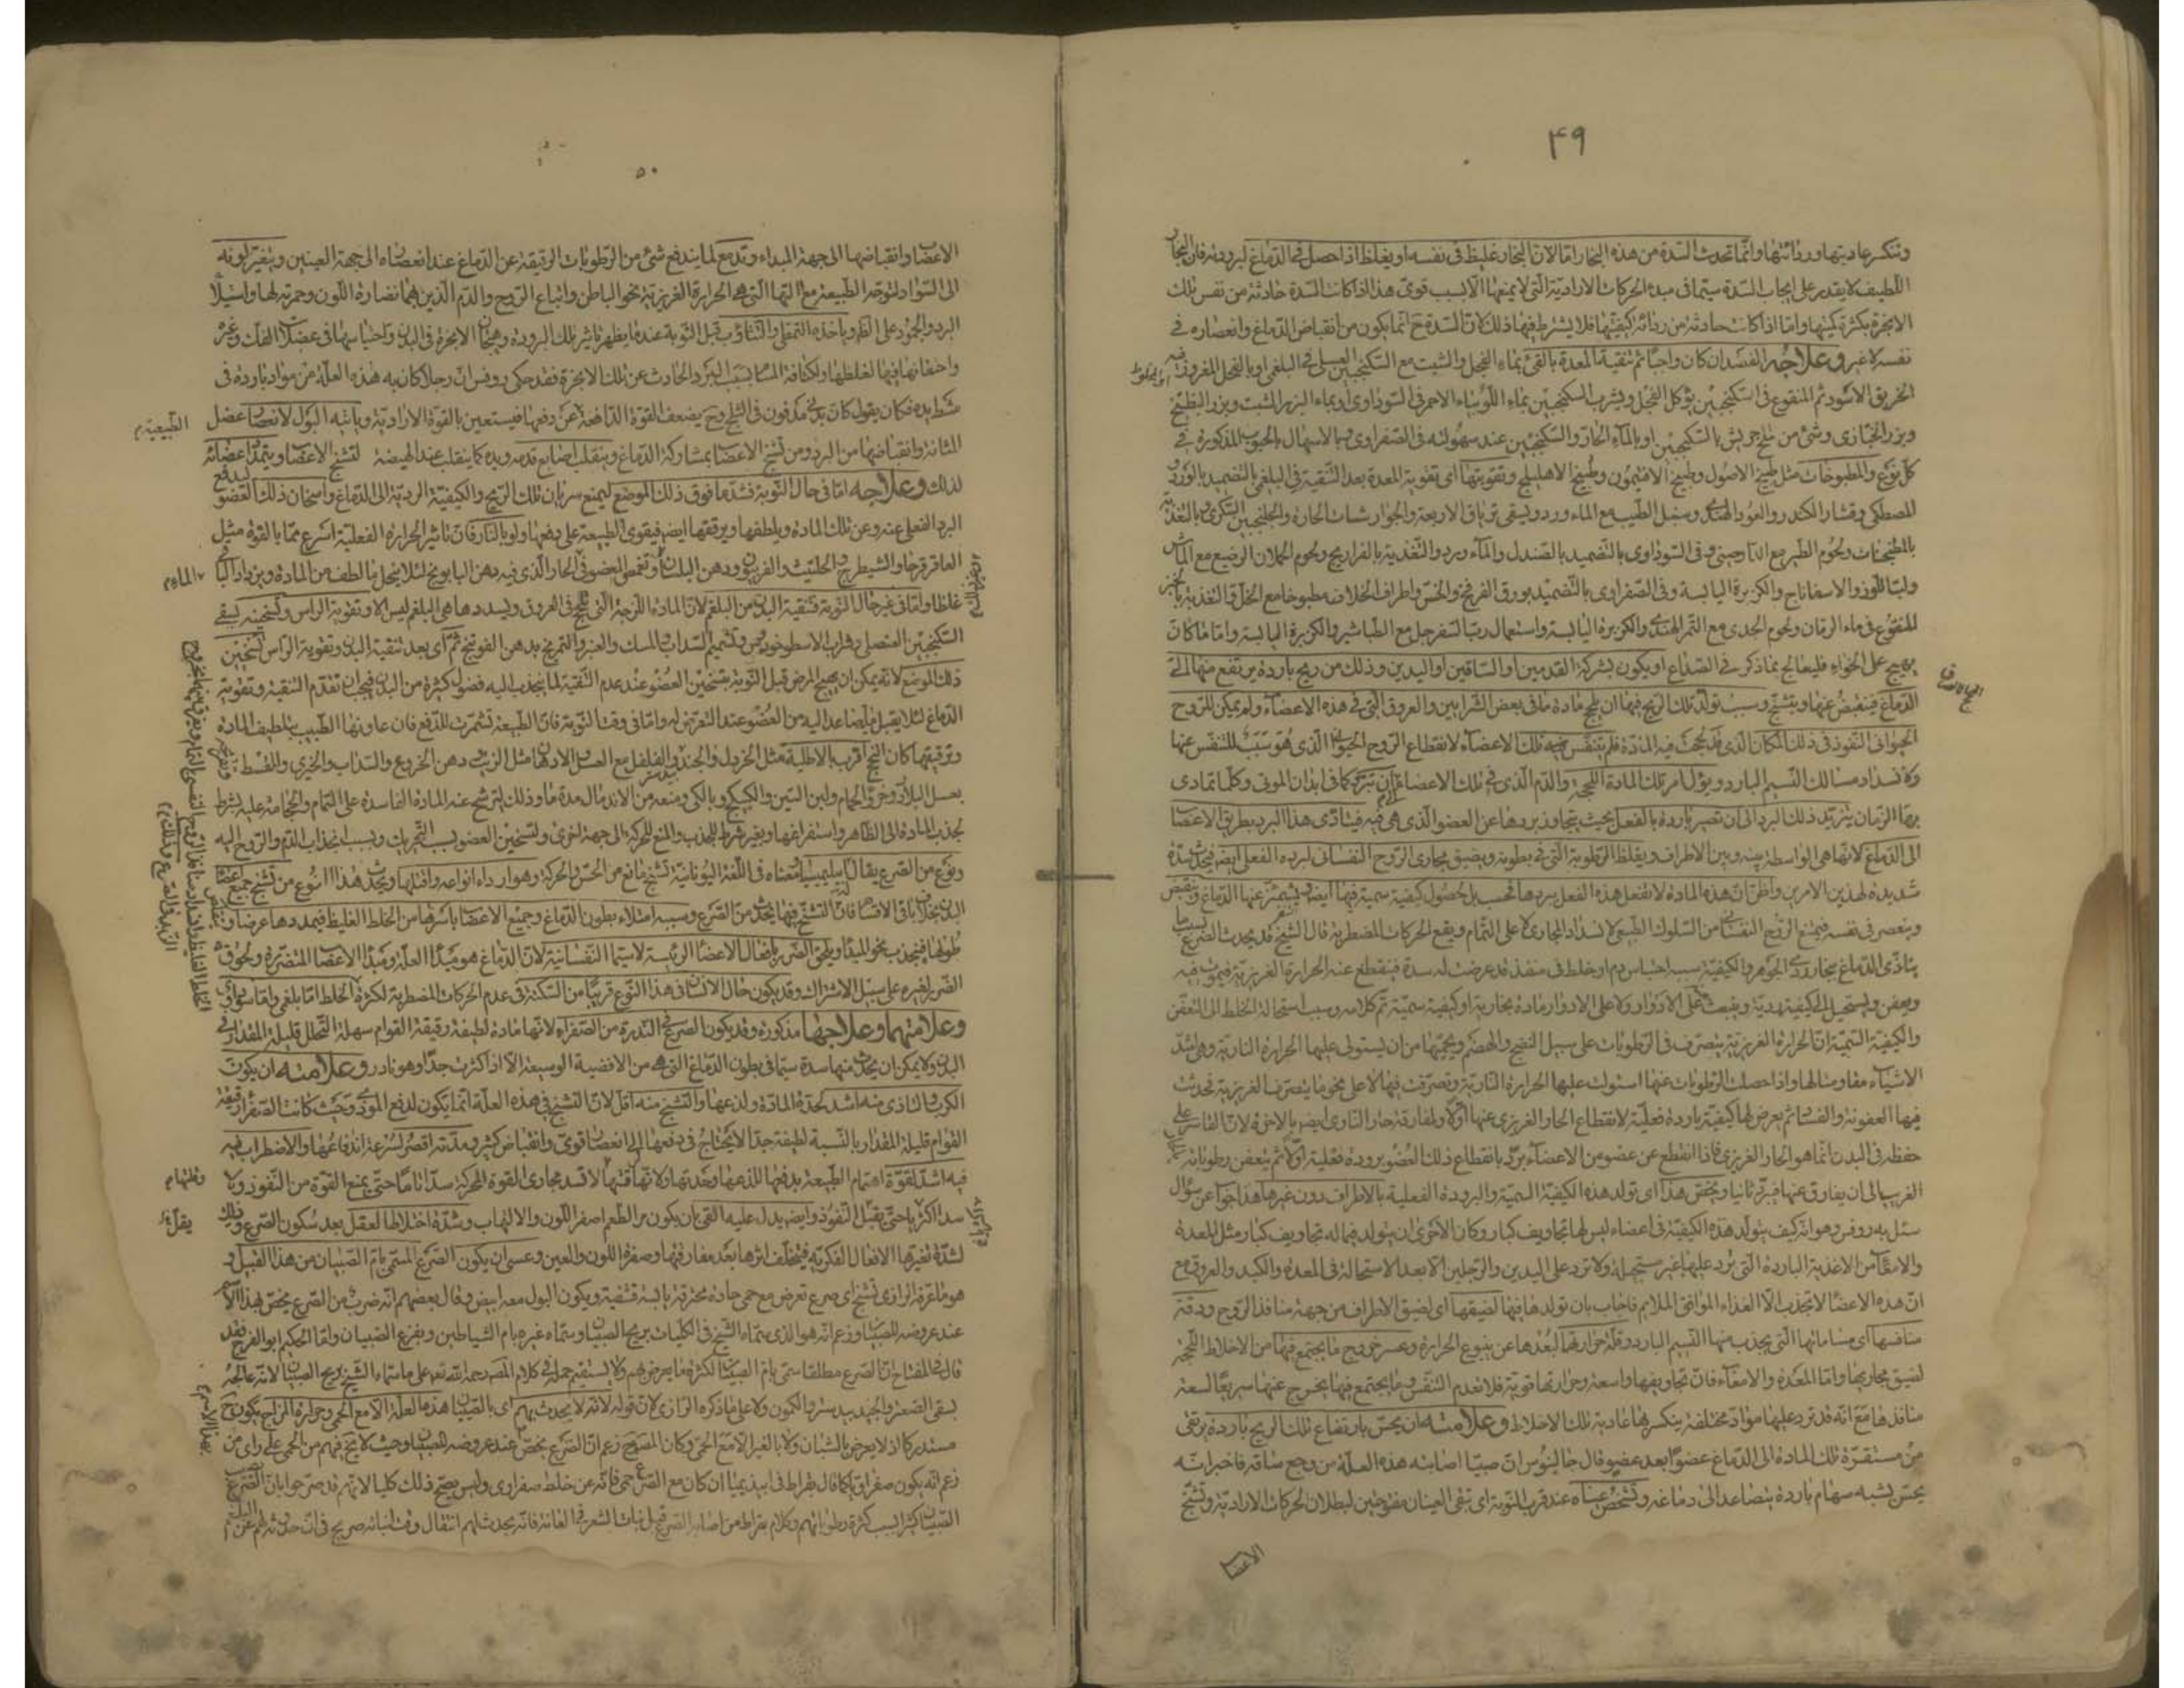 ۴۹
وتنكسر عاديتها وردائتها وانما تحدث السدة من هذه البخار امّا لانّ البخار غليظ فى نفسه او يغلظ اذا حصل فى الدماغ لبرودته فان البخار
اللطيف لا يقدر على ايجاب السدة سيّما فى مبدء الحركات الارادية التى لا يمنعها الا لسبب قوى هذا اذا كانت السدة حادثة من نفس تلك
الابخرة بكثرة كميتها وامّا اذا كانت حادثة من ردائة كيفيتها فلا يشترط فيها ذلك لانّ السدة ح انما يكون من انقباض الدماغ وانعصاره فى
نفسه لا غير وعلاجه الفصد ان كان واجبا ثم تنقية المعدة بالقئ بماء الفجل والشبت مع السكنجبين العسلى فى البلغمى او بالفجل المغروز فيه
الخربق الاسود ثم المنقوع فى السكنجبين يؤكل الفجل ويشرب السكنجبين بماء اللوبياء الاحمر فى السوداوى او بماء البزر الشبت وبزر البطيخ
وبزر الخبازى وشئ من ملح جريش بالسكنجبين او بالماء الحارّ والسكنجبين عند سهولته فى الصفراوى وبالاسهال بالحبوب المذكورة فى
كل نوع والمطبوخات مثل طبيخ الاصول وطبيخ الافتيمون وطبيخ الاهليلج وتقويتها اى تقوية المعدة بعد التنقية فى البلغمى بالتضميد بالورد
والمصطكى وقشار الكندر والعود الهندى وسنبل الطيب مع الماء ورد ويسقى ترياق الاربعة والجوارشات الحارة والجلنجبين السكرى بالتغذية
بالمطجنات ولحوم الطير مع الدارچينى وفى السوداوى بالتضميد بالصندل والماء ورد والتغذية بالفراريج ولحوم الحملان الرضيع مع الماش
ولبّ اللوز والاسفاناج والكزبرة اليابسة وفى الصفراوى بالتضميد بورق الفرفخ والخس واطراف الخلاف مطبوخا مع الخل والتغذية بالخبز
المنقوع فى ماء الرمان ولحوم الجدى مع التمر الهندى والكزبرة اليابسة واستعمال ربّ السفرجل مع الطباشير والكزبرة اليابسة وامّا ما كان
يهيج على الخواء فليعالج بما ذكر فى الصداع او يكون بشركة القدمين او الساقين او اليدين وذلك من ريح باردة يرتفع منها الى
الدماغ فينقبض عنها ويتشنج وسبب تولد تلك الريح فيها ان يلحج مادة ما فى بعض الشرايين والعروق التى فى هذه الاعضاء ولم يمكن للروح
الحيوانى النفوذ فى ذلك المكان الذى قد لحجت فيه المادة فلم يتنفس فيه تلك الاعضاء لانقطاع الروح الحيوانى الذى هو سبب للتنفس عنها
ولانسداد مسالك النسيم البارد ويؤل امر تلك المادة اللحجة والدم الذى فى تلك الاعضاء الى ان تبرد كما فى ابدان الموتى وكلما تمادى
بها الزمان يتزيد ذلك البرد الى ان تصير باردة بالفعل بحيث يتجاوز بردها عن العضو الذى هى فيه فيتأدى هذا البرد بطريق الاعصاب
الى الدماغ لانها هى الواسطة بينه وبين الاطراف ويغلظ الرطوبة التى فى بطونه ويضيق مجارى الروح النفسانى لبرده الفعلى ايضا فيحدث سدة
شديدة لهذين الامرين واظنّ انّ هذه المادة لا تفعل هذه الفعل ببردها فحسب بل لحصول كيفية سمية فيها ايضا ويشمئز عنها الدماغ وينقبض
وينعصر فى نفسه فيمنع الروح النفسانى من السلوك الطبيعى لانسداد المجارى لا على التمام ويقع الحركات المضطربة قال الشيخ قد يحدث الصرع بسبب ما
يتأذى الدماغ ببخار ردى الجوهر والكيفية بسبب احتباس دم او خلط فى منفذ قد عرضت له سدة فينقطع عنه الحرارة الغريزية فيموت فيه
ويعفن ويستحيل الى كيفية ردية وينبعث على الادوار ولا على الادوار مادة بخارية او كيفية سمية تم كلامه وسبب استحالة الخلط الى التعفن
والكيفية السمية انّ الحرارة الغريزية يتصرف فى الرطوبات على سبيل النضج والهضم ويحميها من ان يستولى عليها الحرارة النارية وهى اشد
الاشياء مقاومة لها واذا حصلت الرطوبات عنها استولت عليها الحرارة النارية وتصرفت فيها لا على نحو ما يتصرف الغريزية فحدثت
فيها العفونة والفساد ثم يعرض لها كيفية باردة فعلية لانقطاع الحار الغريزى عنها اولا ولمفارقة حار النارى ايضا بالاخرة لانّ القاسر على
حفظه فى البدن انما هو الحار الغريزى فاذا انقطع عن عضو من الاعضاء برد بانقطاع ذلك العضو برودة فعلية اولا ثم يتعفن رطوباته
الغريب الى ان يفارق عنها فيبرد ثانيا ويختص هذا اى تولد هذه الكيفية السمية والبرودة الفعلية بالاطراف دون غيرها هذا جواب عن سؤال
سئل به روفس وهو انه كيف يتولد هذه الكيفية فى اعضاء ليس لها تجاويف كبار وكان الاحرى ان يتولد فيما له تجاويف كبار مثل المعدة
والامعاء من الاغذية الباردة التى ترد عليها غير مستحيلة ولا ترد على اليدين والرجلين الا بعد الاستحالة فى المعدة والكبد والعروق مع
انّ هذه الاعضاء لا تجذب الا الغذاء الموافق الملايم فاجاب بان تولدها فيها لضيقها اى لضيق الاطراف من جهة منافذ الروح ودقة
منافسها اى مساماتها التى يجذب منها النسيم البارد وقلة حرارتها لبعدها عن ينبوع الحرارة وعسر خروج ما يجتمع فيها من الاخلاط اللحجة
لضيق مجاريها وامّا المعدة والامعاء فانّ تجاويفها واسعة وحرارتها قوية فلا تعدم التنفس وما يجتمع فيها يخرج عنها سريعا لسعة
منافذها مع انّه قد ترد عليها مواد مختلفة ينكسر بها عادية تلك الاخلاط وعلامته ان يحس بارتفاع تلك الريح باردة يرتقى
من مستقرّة تلك المادة الى الدماغ عضوا بعد عضو قال جالينوس ان صبيّا اصابته هذه العلة من وجع ساقه فاخبر انه
يحسّ بشبه سهام باردة يتصاعد الى دماغه وتشخص عيناه عند قرب النوبة اى تبقى العينان مفتوحتين لبطلان الحركات الارادية وتشنج
الاعضا
۵۰
الاعصاب وانقباضها الى جهة المبداء وتدمع لما يندفع شئ من الرطوبات الرقيقة عن الدماغ عند انعصاره الى جهة العينين ويتغير لونه
الى السواد لتوجه الطبيعة مع التها التى هى الحرارة الغريزية نحو الباطن واتباع الروح والدم الذين بهما نضارة اللون وحمرته لها واستيلاء
البرد والجمود على الظاهر وياخذه التمطى والتثاؤب قبل النوبة عندما يظهر تاثير تلك البرودة وهيجان الابخرة فى البدن واحتباسها فى عضلات الفك وغيره
واحتقانها فيها لغلظها ولكثافة المسام بسبب البرد الحادث عن تلك الابخرة فقد حكى روفس ان رجلا كان به هذه العلة من مواد باردة فى
يده فكان يقول كان يدى مدفون فى الثلج وح يضعف القوة الدافعة عن دفعها فيستعين بالقوة الارادية وياتيه البول لانعصار عضل
الطبيعية م
المثانة وانقباضها من البرد ومن تشنج الاعصاب بمشاركة الدماغ وينقلب اصابع قدمه ويده كما ينقلب عند الهيضة لتشنج الاعصاب ويتمدد اعضائه
لذلك وعلاجه امّا فى حال النوبة فشدّ ما فوق ذلك الموضع ليمنع سريان تلك الريح والكيفية الردية الى الدماغ واسخان ذلك العضو ليدفع
البرد الفعلى عنه وعن تلك المادة ويلطفها ويرققها ايضا فيقوى الطبيعة على دفعها ولو بالنار فان تاثير الحرارة الفعلية اسرع ممّا بالقوة مثيل
العاقرقرحا والشيطرج والحلتيت والفربيون ودهن البلسان وتغمس العضو فى الحار الذى فيه دهن البابونج لئلا ينحل ما لطف من المادة ويزداد الباقى
الماء م
غلظا وامّا فى غير حال النوبة فتنقية البدن من البلغم لانّ المادة اللزجة التى تلحج فى العروق ويسددها هى البلغم ليس الا وتقوية الراس وتسخينه بسقى
السكنجبين العنصلى وشراب الاسطوخودوس وتشميم السداب والمسك والعنبر والتمريخ بدهن الفوتنج ثم اى بعد تنقية البدن وتقوية الراس تسخين
ذلك الموضع لانه يمكن ان يهيج المرض قبل النوبة بتسخين العضو عند عدم التنقية لما ينجذب اليه فضول كثيرة من البدن فيجب ان تقدم التنقية وتقوية
الدماغ لئلا يقبل ما يتصاعد اليه من العضو عند التعرض له وامّا فى وقت النوبة فانّ الطبيعة تشمرت للدفع فان عاونها الطبيب بتلطيف المادة
وترقيقها كان النجح اقرب بالاطلية مثل الخردل والجند والفلفل مع العسل والادهان مثل الزيت ودهن الخروع والسداب والخيرى والقسط
بعسل البلادر وخرؤ الحمام ولبن التين والكبيكج وبالكى ومنعه من الاندمال مدة ما وذلك لترشح عنه المادة الفاسدة على التمام والحجامة عليه بشرط
لجذب المادة الى الظاهر واستفراغها وبغير شرط للجذب والمنع للحركة الى جهة اخرى ولتسخين العضو بسبب التحريك وبسبب انجذاب الدم والروح اليه
ونوع من الصرع يقال له ابيلمبسيا ومعناه فى اللغة اليونانية تشنج مانع من الحس والحركة وهو اردء انواعه واقتلها ويحدث هذا النوع من تشنج جميع اعضاء
البدن بخلاف باقى الاقسام فانّ التشنج فيها يحدث من الصرع وسببه امتلاء بطون الدماغ وجميع الاعصاب باسرها من الخلط الغليظ فيمددها عرضا وينقص
طولها فينجذب نحو المبدا ويلحق الضرر بافعال الاعضاء الرئيسة لا سيما النفسانية لان الدماغ هو مبدأ العلة ومبدأ الاعصاب المتضررة ولحوق
الضرر لغيره على سبيل الاشتراك وقد يكون حال الانسان فى هذا النوع قريبا من السكتة فى عدم الحركات المضطربة لكثرة الخلط امّا بلغمى وامّا سوداوى
وعلامتهما وعلاجهما مذكورة وقد يكون الصرع فى الندرة من الصفراء لانها مادة لطيفة رقيقة القوام سهلة التحلل قليلة المقدار فى
البدن ولا يمكن ان يحدث منها سدة سيّما فى بطون الدماغ التى هى من الافضية الوسيعة الا اذا كثرت جدّا وهو نادر وعلامته ان يكون
الكرب والتاذى منه اشد لحدة المادة ولذعها والتشنج منه اقل لانّ التشنج فى هذه العلة انما يكون لدفع الموذى وحيث كانت الصفراء رقيقة
القوام قليلة المقدار بالنسبة لطيفة جدّا لا يحتاج فى دفعها الى انعصار قوى وانقباض كثير ومدته اقصر لسرعة اندفاعها والاضطراب فيه
فيه اشد لقوة اهتمام الطبيعة بدفعها للذعها وحدتها ولانها لقلتها لا تسد مجارى القوة المحركة سدّا تامّا حتى يمنع القوة من النفوذ ولا
وقلتها م
سدا اكثريا حتى يقلّ النفوذ وايضا يدل عليه القئ بان يكون مر الطعم اصفر اللون والالتهاب وشدّة اختلاط العقل بعد سكون الصرع وذلك
لشدة تغيرها الافعال الفكرية فيتخلف اثرها بعد مفارقتها وصفرة اللون والعين وعسى ان يكون الصرع المسمى بامّ الصبيان من هذا القبيل و
هو ما عرفه الرازى تشنج اى صرع تعرض مع حمى حادة محرقة يابسة قشفية ويكون البول معه ابيض وقال بعضهم انه ضرب من الصرع يختص بهذا الاسم
عند عروضه للصبيان وزعم انه هو الذى سماه الشيخ فى الكليات بريح الصبيان وسماه غيره بام الشياطين وبفزع الصبيان وامّا الحكيم ابو الفرج فقد
قال فى المفتاح انّ الصرع مطلقا سمى بام الصبيان لكثرة ما يعرض لهم ولا يستقيم حمل كلام المصنف رحمه الله تعالى على ما سماه الشيخ بريح الصبيان لانّه عالجه
بسقى الصعتر والجندبيدستر والكمون ولا على ما ذكره الرازى لانّ قوله لانه لا يحدث بهم اى بالصبيان هذه العلة الا مع الحمى وحرارة المزاج يكون ح
مستدركا اذ لا يعرض بالشبان ولا بالغير الا مع الحمى وكان المصنف زعم ان الصرع يختص عند عروضه للصبيان وحيث لا يخ فيهم من الحمى على راى من
بهذا الاسم م
زعم انه يكون صفراويا كما قال بقراط فى ابيذيميا ان كان مع الصرع حمى فانه عن خلط صفراوى وليس يصح ذلك كليا لانهم قد صرحوا بان الصرع يصيب
الصبيان كثيرا بسبب كثرة رطوباتهم وكلام بقراط من اصابه الصرع قبل نبات الشعر فى العانة فانه يحدث لهم انتقال وقت نباته صريح فى ان حدوثه لهم عن البلغم